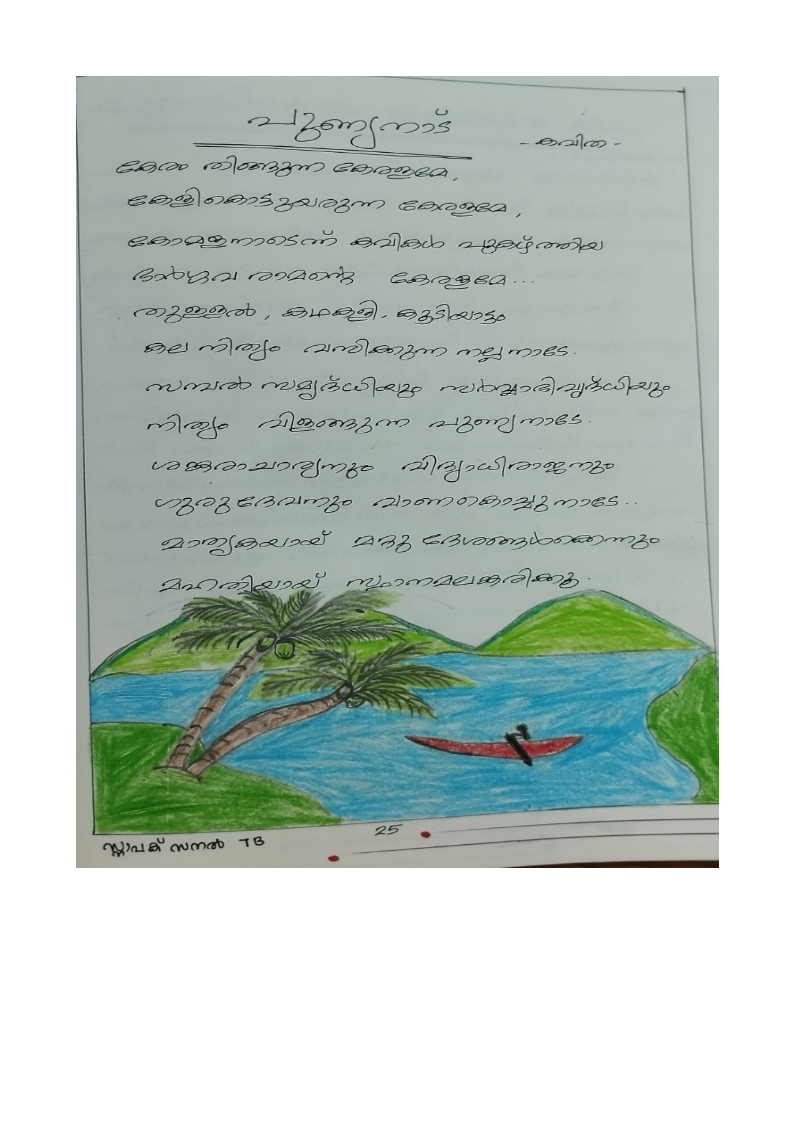 പുണ്യനാട്
- കവിത -
കേരം തിങ്ങുന്ന കേരളമേ,
കേളികൊട്ടുയരുന്ന കേരളമേ,
കോമളനാടെന്ന് കവികൾ പുകഴ്ത്തിയ
ഭാർഗ്ഗവ രാമന്റെ കേരളമേ...
തുള്ളൽ, കഥകളി, കൂടിയാട്ടം
കല നിത്യം വസിക്കുന്ന നല്ല നാടേ.
സമ്പൽ സമൃദ്ധിയും സർവ്വാഭിവൃദ്ധിയും
നിത്യം വിളങ്ങുന്ന പുണ്യനാടേ.
ശങ്കരാചാര്യനും വിദ്യാധിരാജനും
ഗുരുദേവനും വാണകൊച്ചുനാടേ..
മാതൃകയായ് മറ്റു ദേശങ്ങൾക്കെന്നും
മഹതിയായ് സ്ഥാനമലങ്കരിക്കൂ.
25
സനൽ 7B